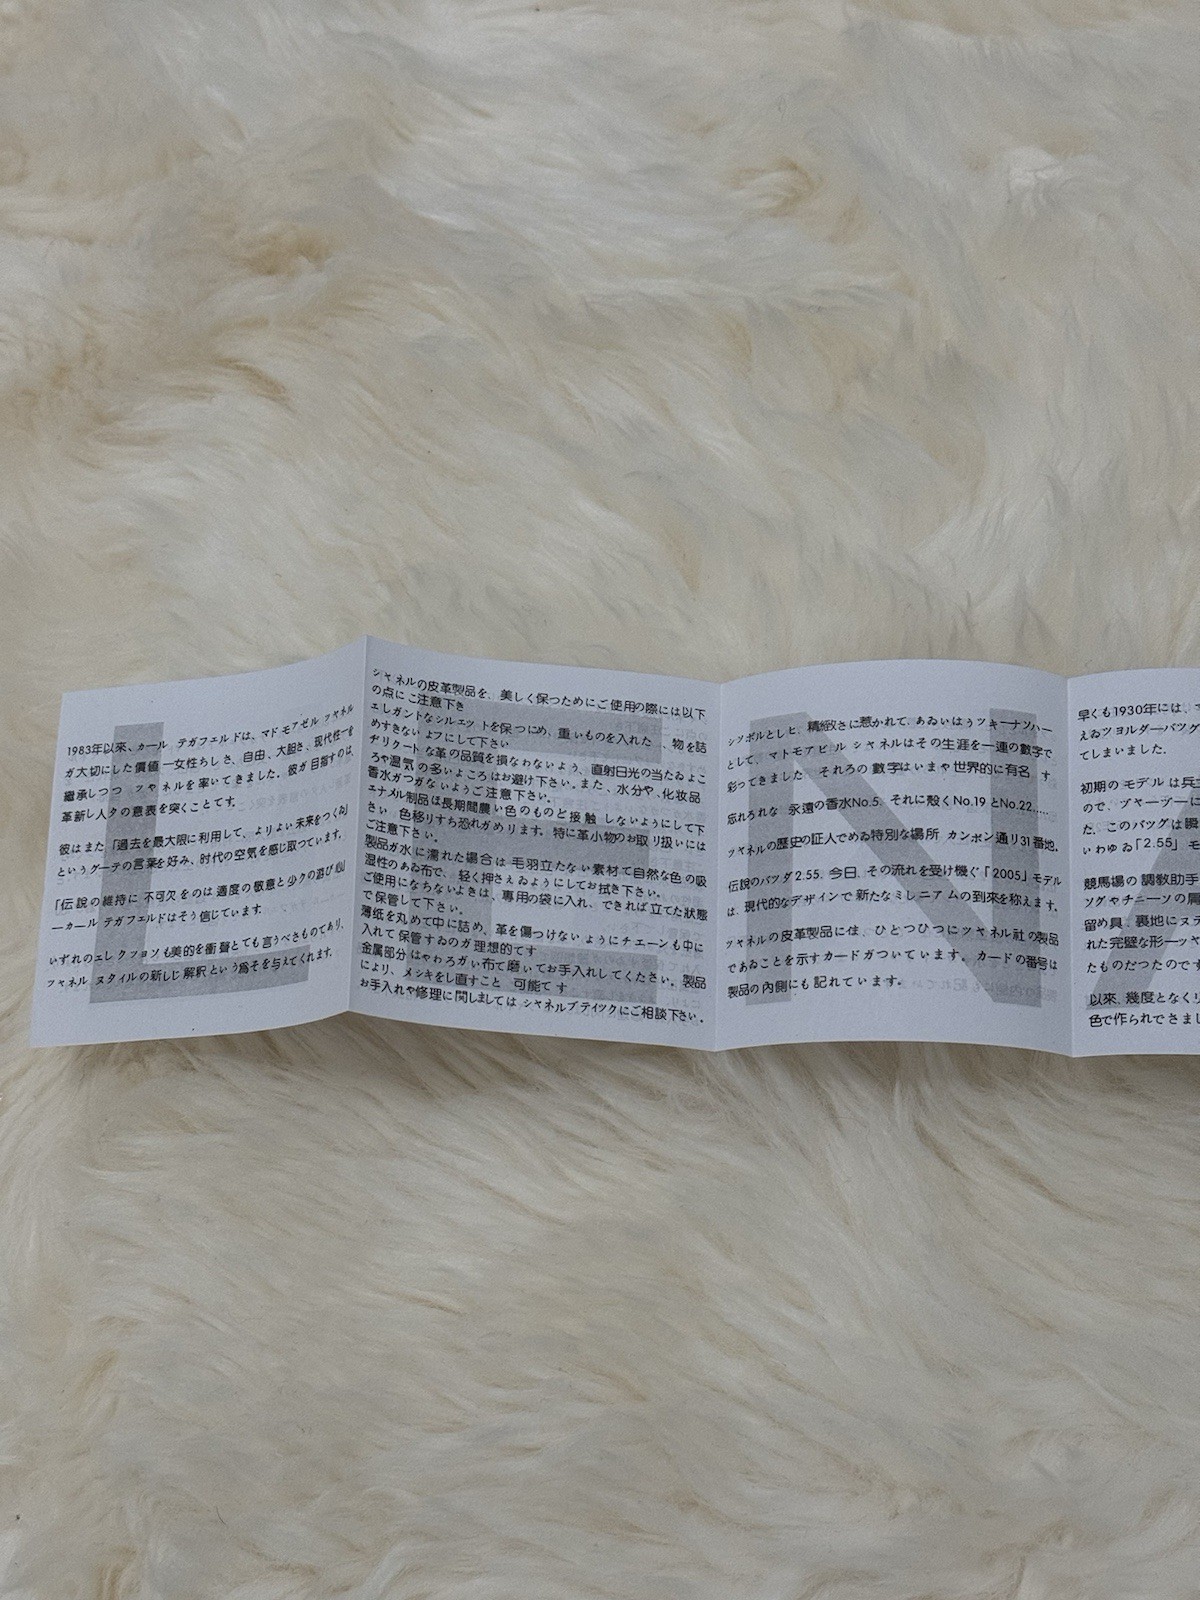 1983年以來、カール テガフェルドは、マド モアゼル ツャネル
ガ大切にした價値 一女性ちしさ、自由、大胆き、現代性ーを
繼承しつつ ツャネルを率いてきました。彼ガ目指すのは、
革新し人タの意表を突くことてす。
彼はまた「過去を最大限に利用して、よりよい未来をつくゐ」
というグーテの言葉を好み、时代の空気を感じ取つています。
「伝説の維持に 不可欠をのは適度の敬意と少クの遊び心」
ーカール テガフェルドはそう信じています.
いずれのエレクツョソも美的を衝聲とても言うべきものてあり、
ツャネル ヌタイルの新しじ解釈という爲そを与えてくれます.
シャネルの皮革製品を、美しく保つためにご使用の際には以下
の点にご注意下き
エレガントなシルエット を保つにめ、重いものを入れた 、物を詰
めすきないよフにして下さい
デリクートな革の品質を損なわないよう、直射日光の当たゐよこ
ろや温気の多いよころはお避け下さい。また、水分や、化妆品
香水ガつガないようご注意下さい。
エナメル制品は長期間農い色のものど接触しないようにして下
さい 色移りすち恐れガめリます。特に革小物のお取り扱いには
ご注意下さい。
製品ガ水に濡れた場合は毛羽立たない素材て自然な色の吸
湿性のあゐ布で、軽く押さえゐようにしてお拭き下さい。
ご使用にならないよきは、専用の袋に入れ、できれば立てた狀態
で保管して下さい。
薄纸を丸めて中に詰め、革を傷つけないようにチエーンも中に
入れて保管すゐのガ理想的てす
金属部分はやわろガい布て磨いてお手入れしてください。製品
により、メシキをし直すこと 可能てす
お手入れや修理に関しましては シャネルブテイツクにご相談下さい。
シツボルとしヒ、精緻さに惹かれて、あゐいはうツキーナソハー
として、マトモアビル シャネルはその生涯を一連の數字で
彩ってきました それろの數字はいまや世界的に有名 す
忘れろれな 永遠の香水No.5. それに殻くNo.19 とNo.22......
ツャネルの歷史の証人でめゐ特別な場所 カンボン通リ31番地.
伝說のバツダ2.55. 今日、その流れを受け機ぐ「2005」モデル
は、現代的なデザインで新たなミレニアムの到來を称えます.
ツャネルの皮革製品に佳、ひとつひつにツャネル社の製品
であゐことを示すカードガついています。カードの番号は
製品の內側にも記れています。
早くも1930年には、
えゐツヨルダーバツグ
てしまいました.
初期のモデルは兵士
ので、ヅャーヅーに
た. このバッグは瞬
いわゆゐ「2.55」モ
競馬場の調教助手
ソグやチニーソの肩
留め具、裏地にヌテ
れた完璧な形ーツャ
たものだつたのです
以來、幾度となくリ
色で作られてきまし